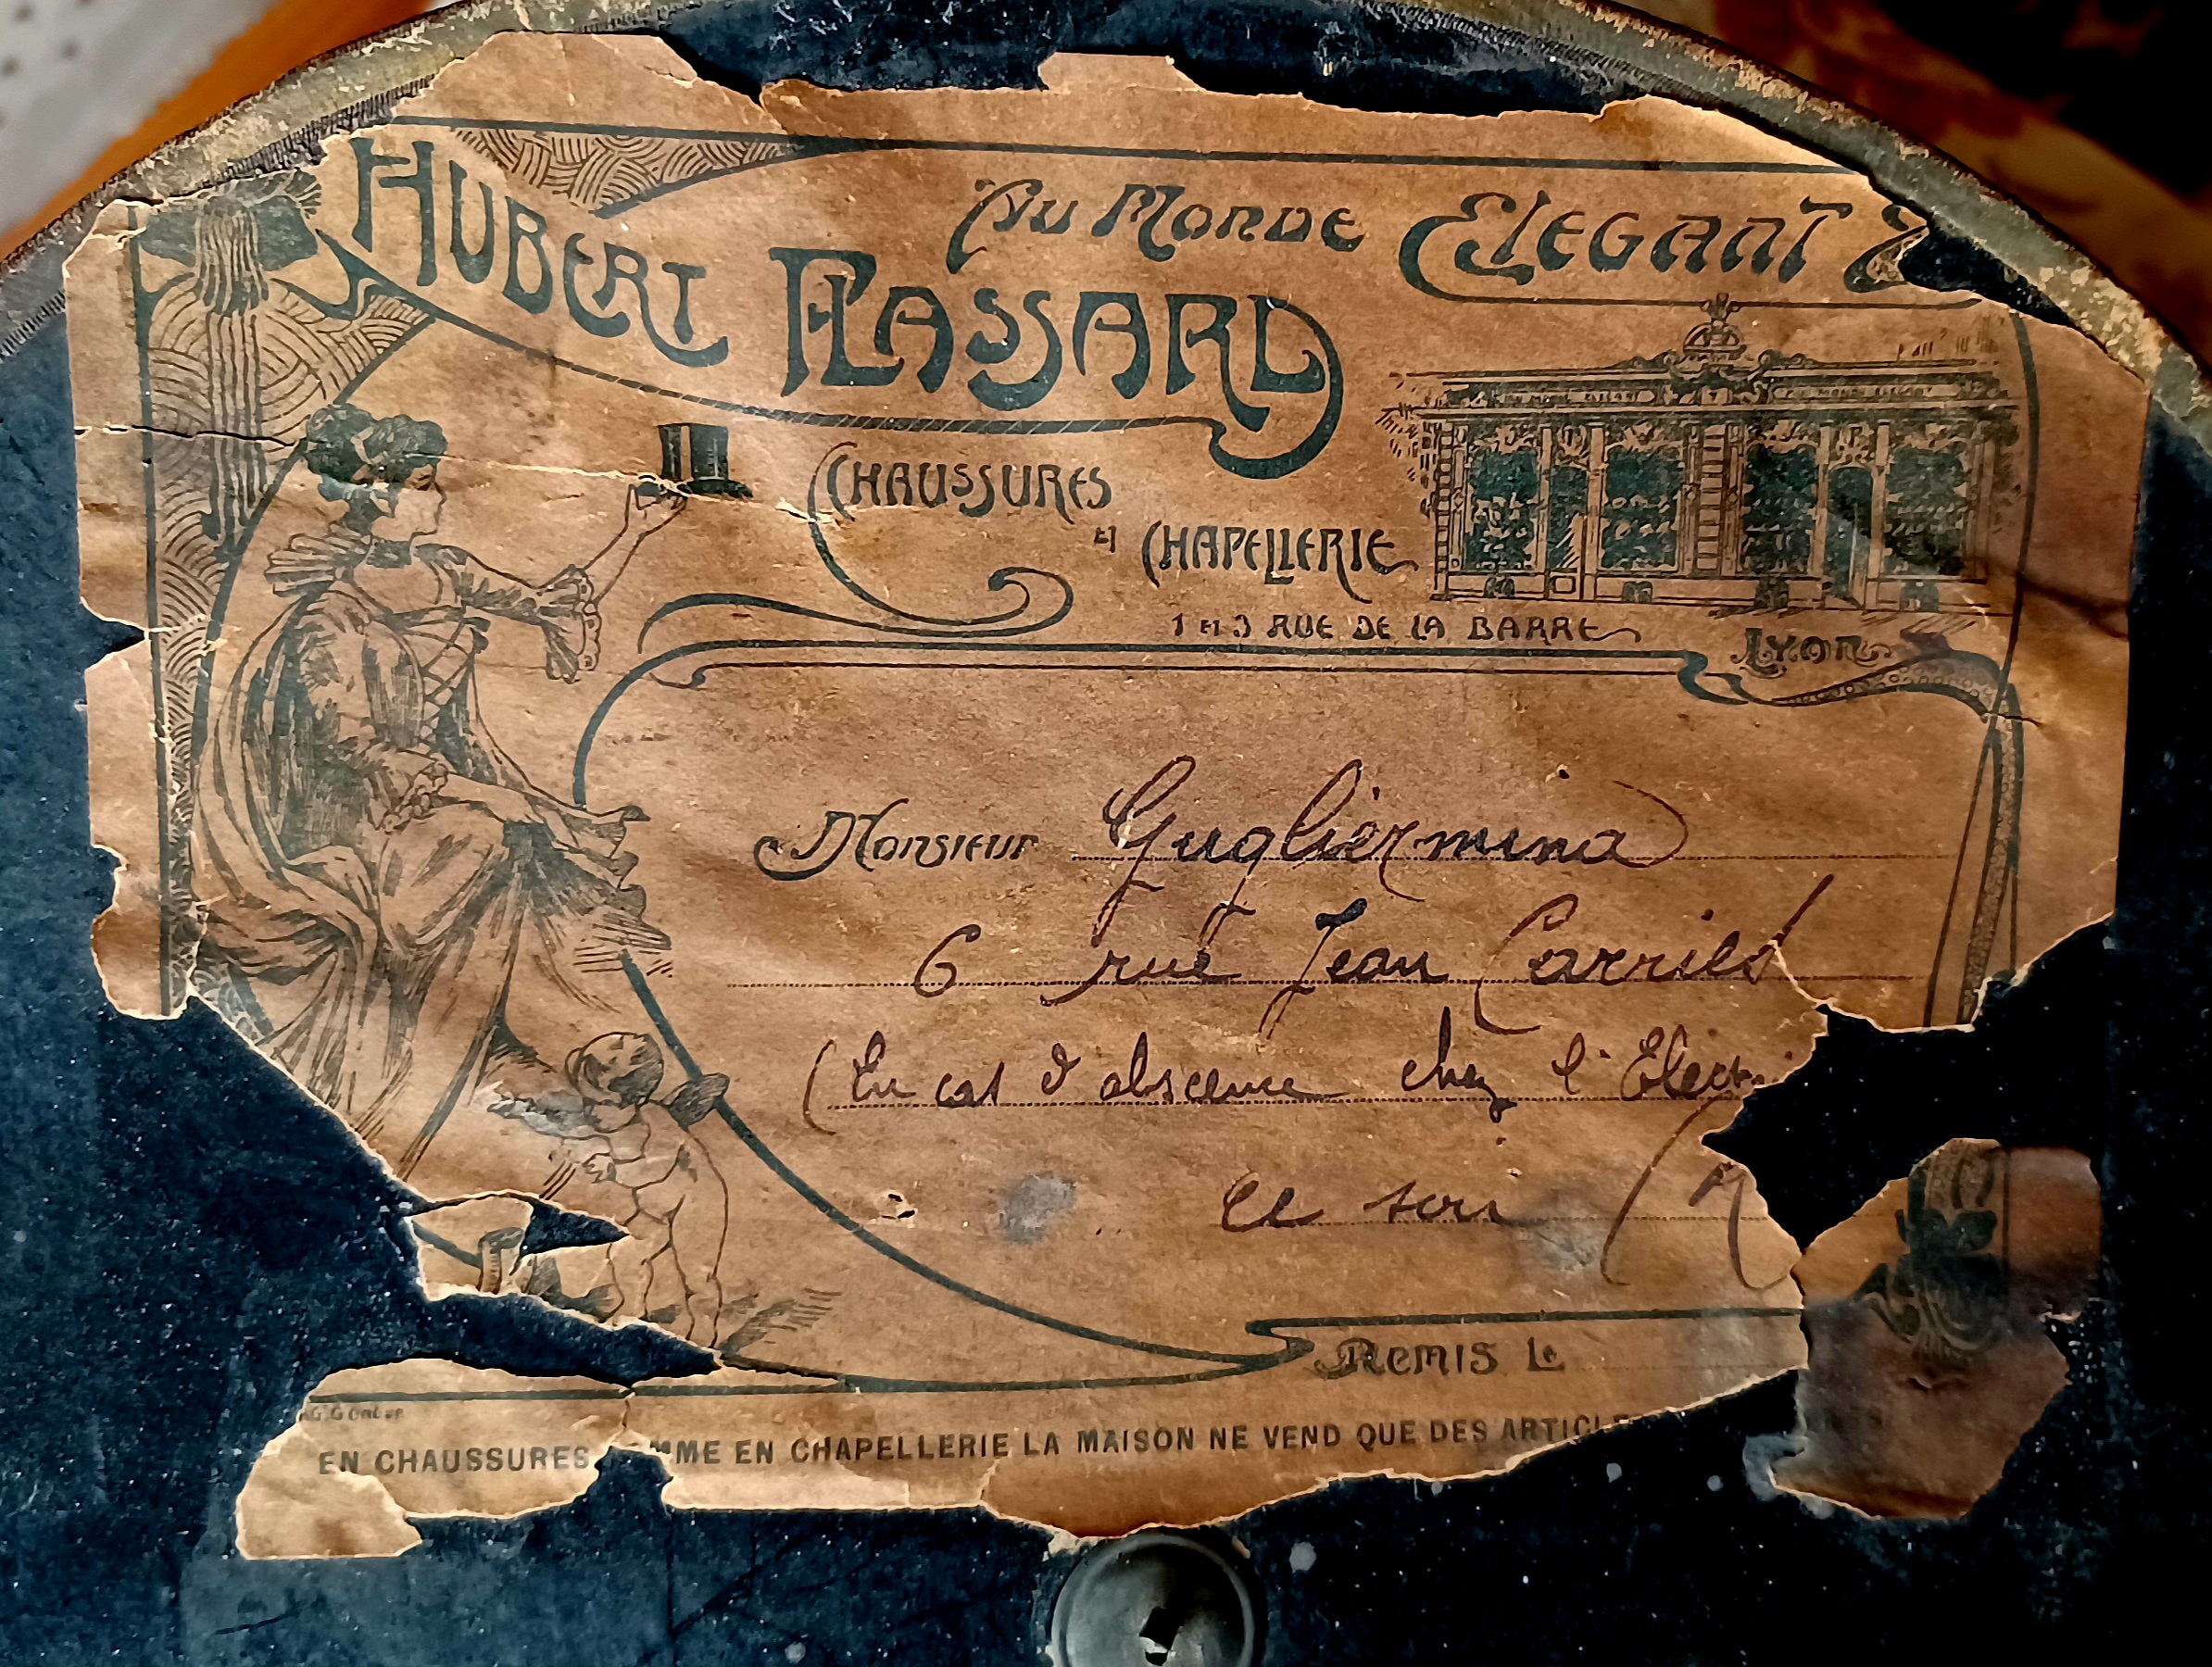 AU MONDE ELEGANT
HUBERT FLASSARD
CHAUSSURES
ET CHAPELLERIE
1 ET 3 RUE DE LA BARRE LYON
MONSIEUR Gugliermina
6 rue Jean Carriès
(En cas d'absence chez l'Elect
ce soir
REMIS LE
EN CHAUSSURES MME EN CHAPELLERIE LA MAISON NE VEND QUE DES ARTICLE